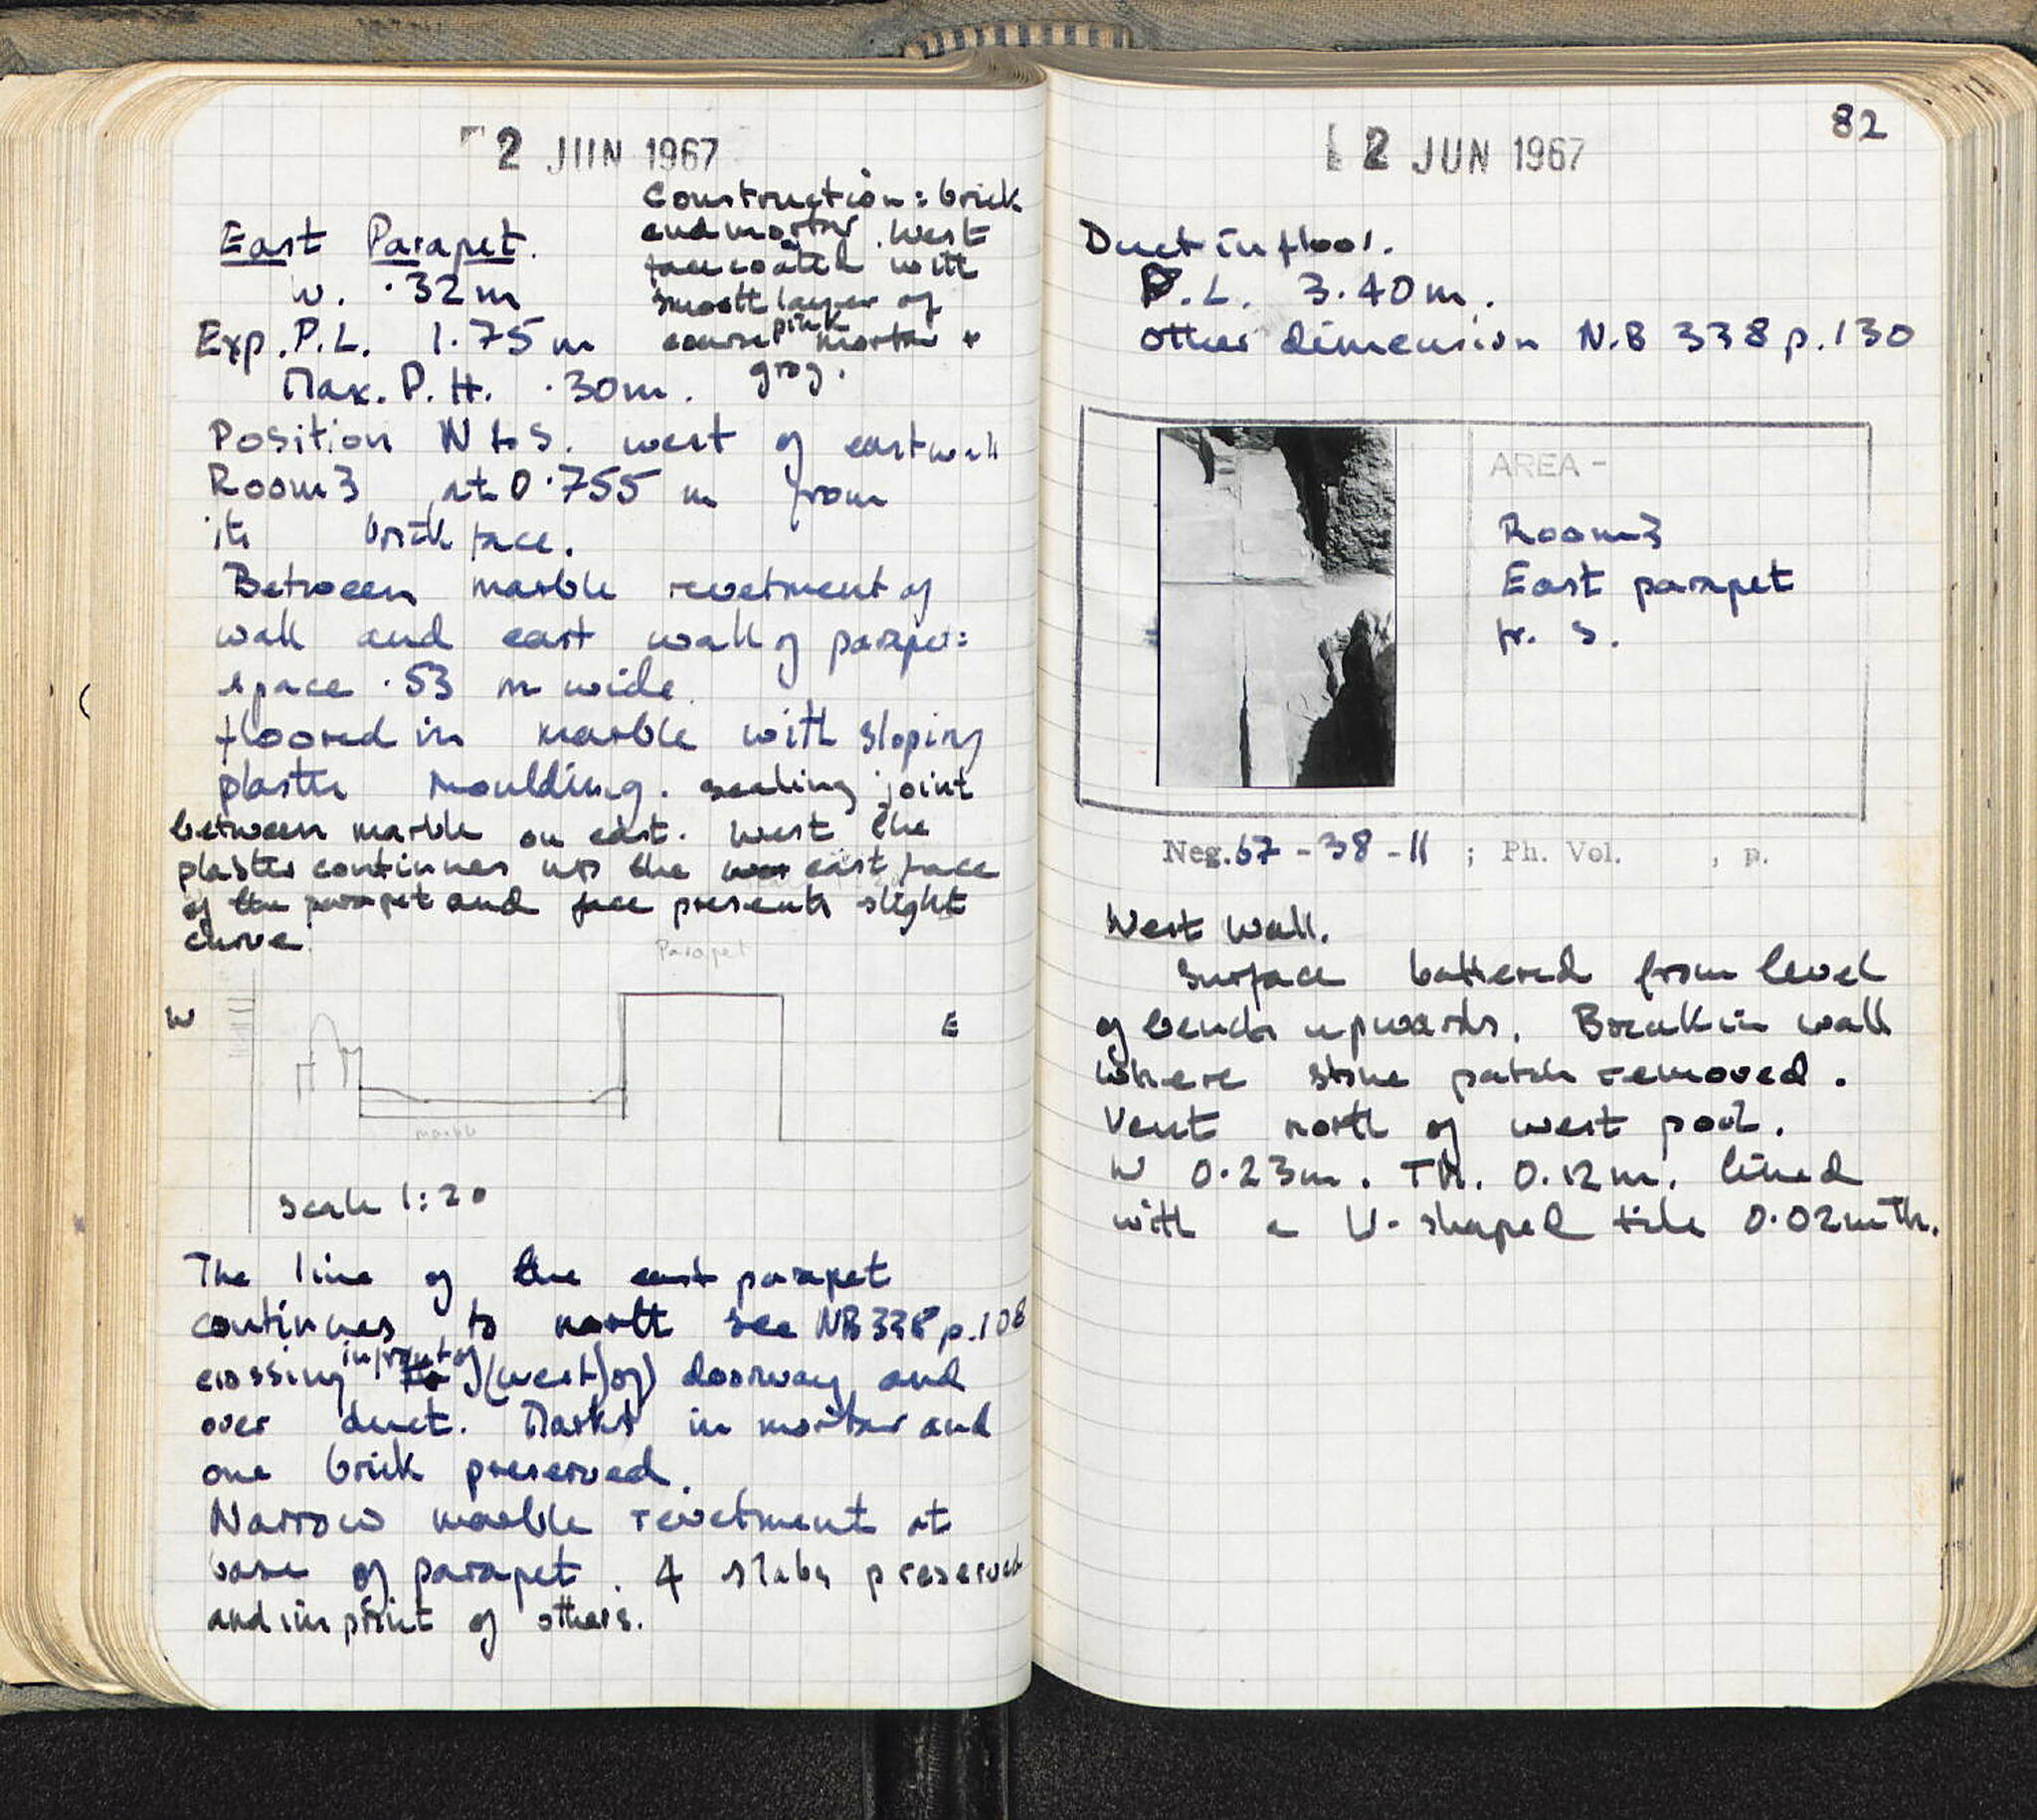 2 JUN 1967
East Parapet.
w. .32 m
Exp. P.L. 1.75 m
Max. P. H. .30m.
Construction: brick
and mortar. West
face coated with
smooth layer of
coarse pink mortar +
grog.
Position N to S. west of east wall
Room 3 at 0.755 m from
its brick face.
Between marble revetment of
wall and east wall of parapet:
space .53 m wide.
floored in marble with sloping
plaster moulding. sealing joint
between marble on east. West the
plaster continues up the east face
of the parapet and face presents slight
curve.
Parapet
W
E
marble
Scale 1:20
The line of the east parapet
continues to north see NB 338 p. 108
crossing in front of (west of) doorway and
over duct. Marks in mortar and
one brick preserved.
Narrow marble revetment at
base of parapet. 4 slabs preserved
and imprint of others.
82
2 JUN 1967
Duct in floor.
P.L. 3.40m.
other dimension N.B 338 p. 130
AREA -
Room 3
East parapet
fr. S.
Neg. 67-38-11 ; Ph. Vol. , p.
West Wall.
Surface battered from level
of bench upwards. Break in wall
where stone patch removed.
Vent north of west pool.
W 0.23m. Th. 0.12m. lined
with a U-shaped tile 0.02m Th.